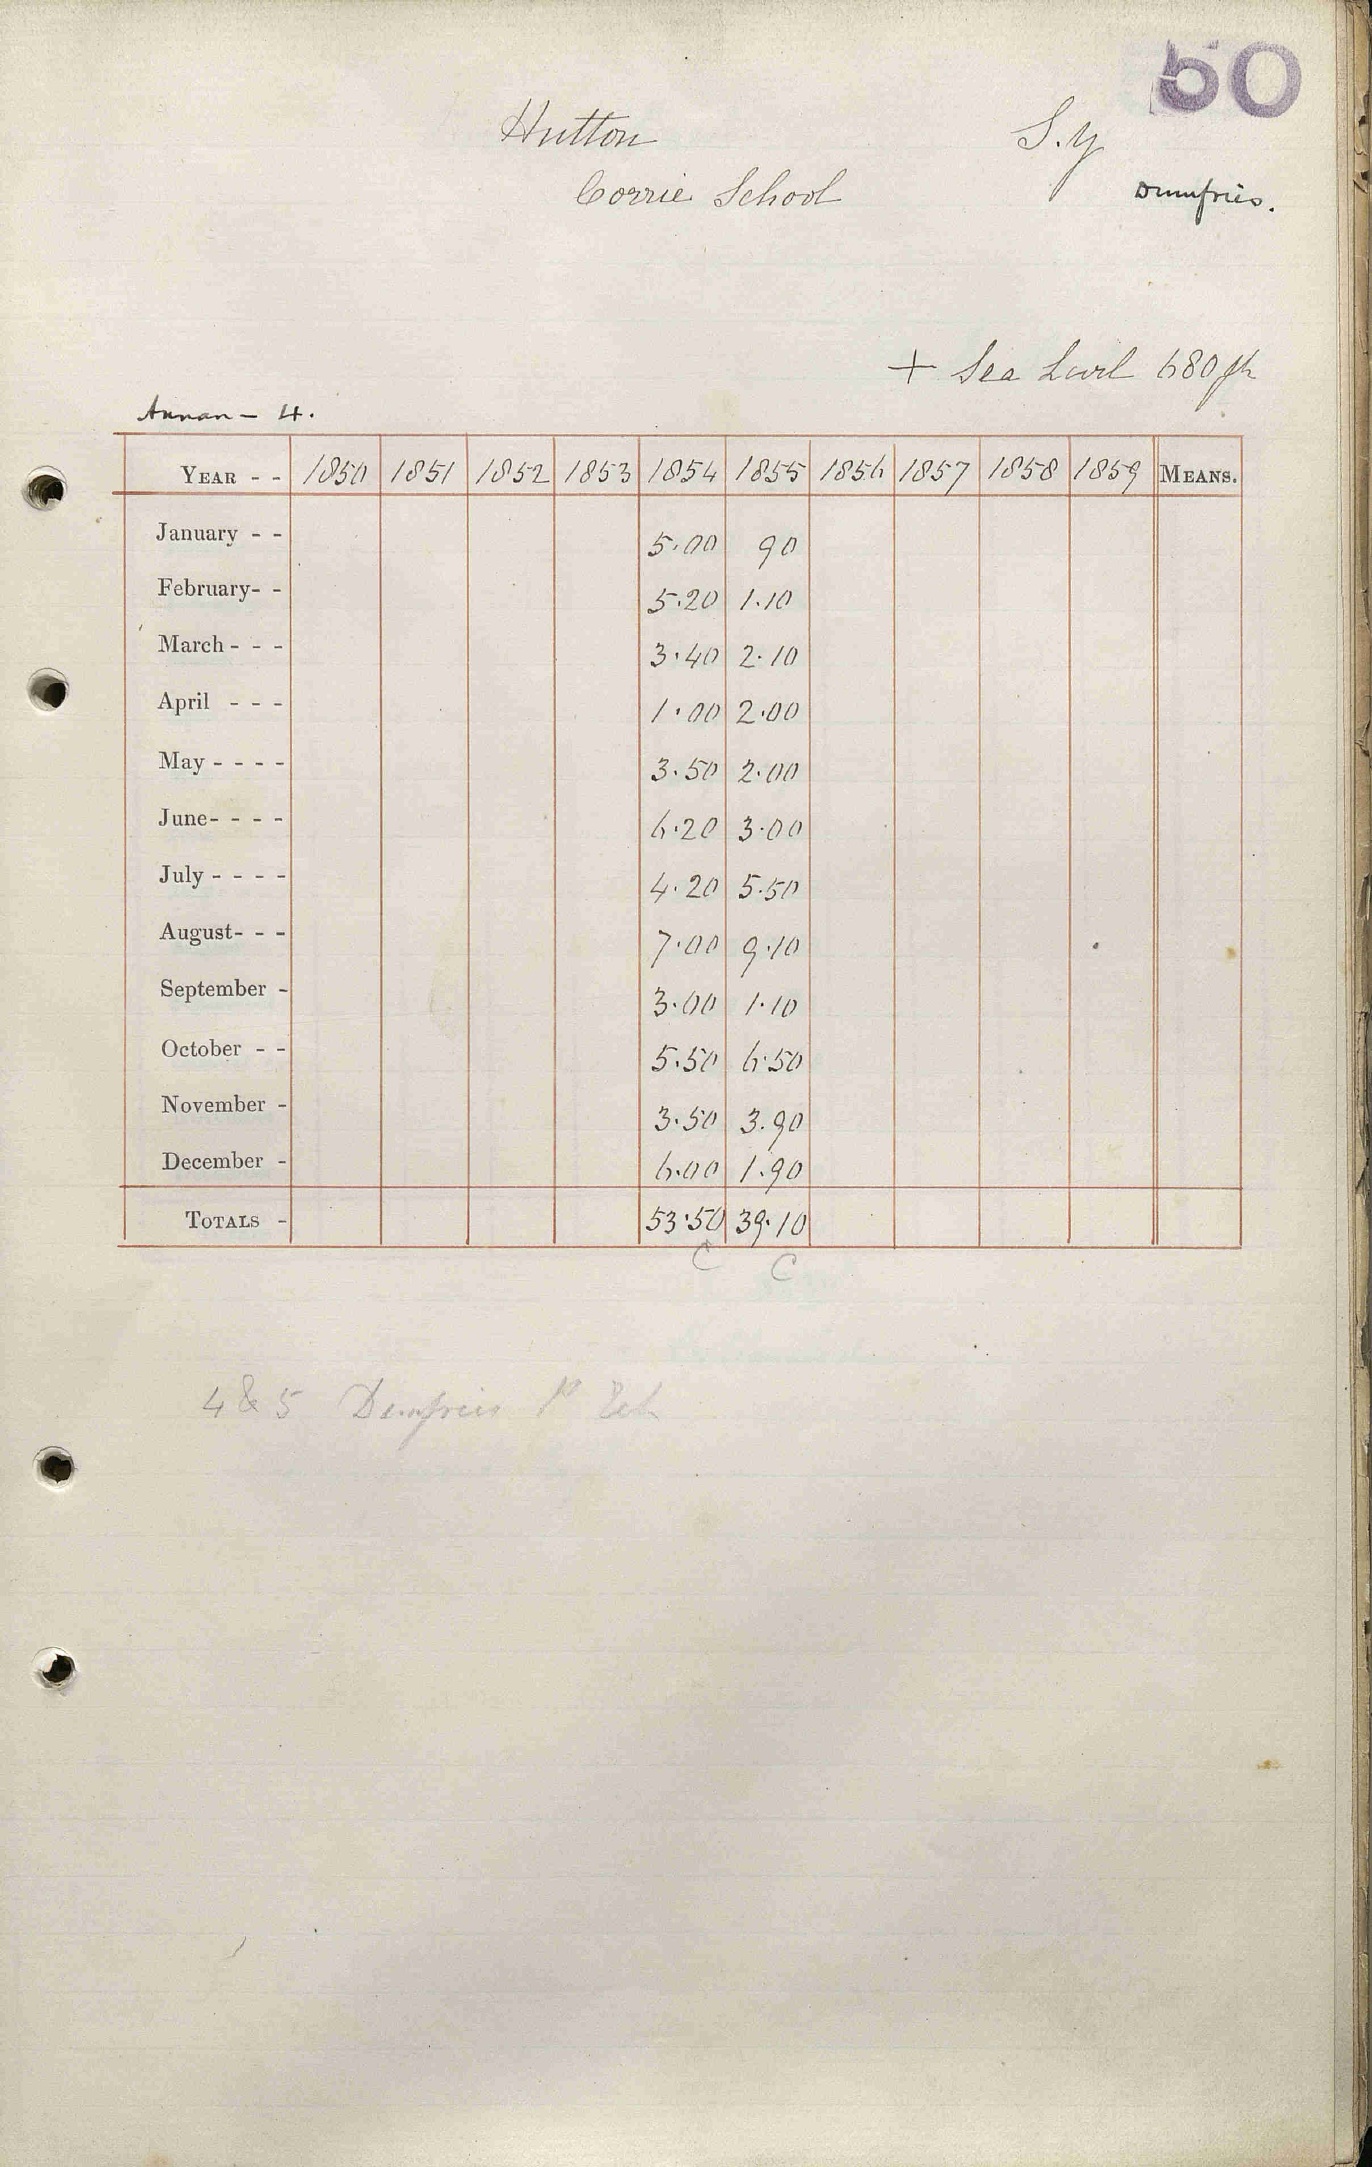 50
Hutton S.Y
Corrie School Dumfries.
+ Sea Level 680 ft
Annan - 4.
YEAR - - 1850 1851 1852 1853 1854 1855 1856 1857 1858 1859 MEANS.
January - - 5.00 90
February- - 5.20 1.10
March - - - 3.40 2.10
April - - - 1.00 2.00
May - - - - 3.50 2.00
June- - - - 6.20 3.00
July - - - - 4.20 5.50
August- - - 7.00 9.10
September - 3.00 1.10
October - - 5.50 6.50
November - 3.50 3.90
December - 6.00 1.90
TOTALS - 53.50 39.10
C C
4 & 5 Dumfries